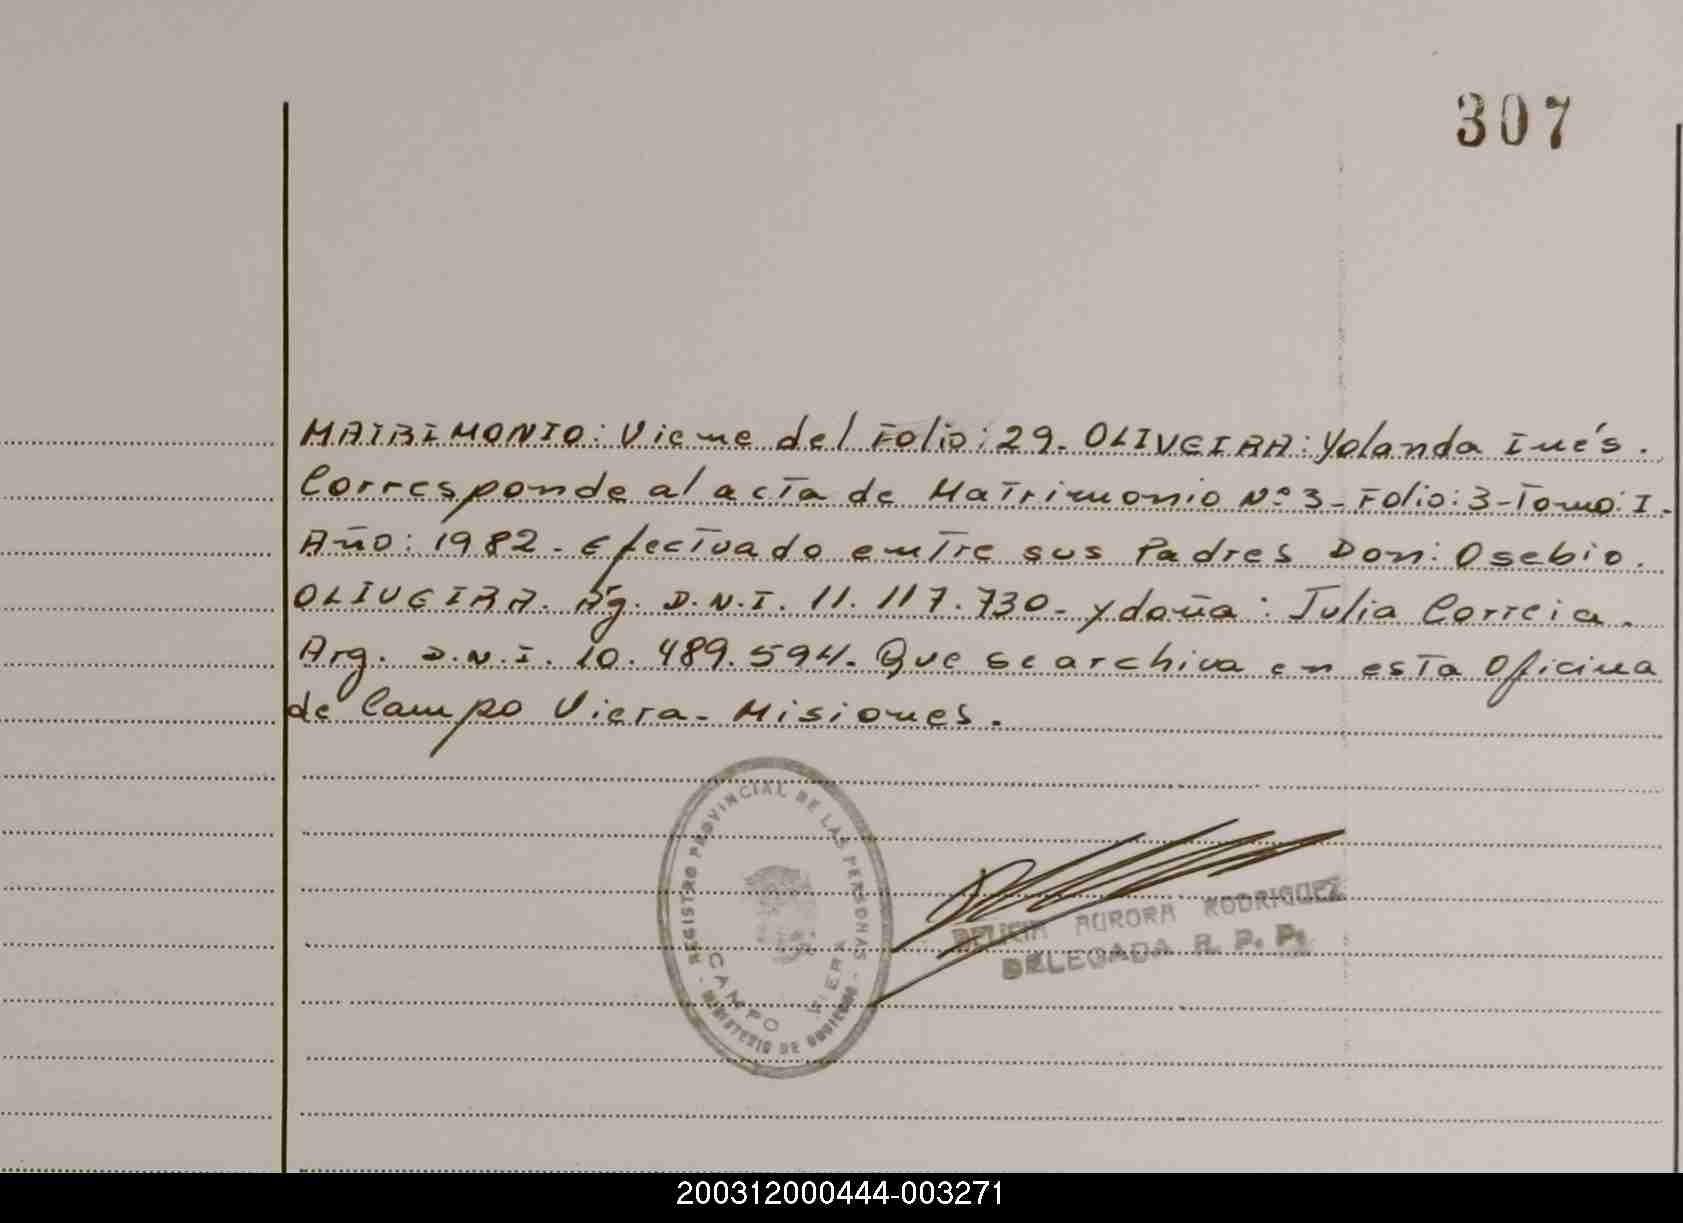 307
MATRIMONIO: Viene del Folio: 29. OLIVEIRA: Yolanda Inés.
Corresponde al acta de Matrimonio Nº 3 - Folio: 3 - Tomo: I.
Año: 1982. Efectuado entre sus Padres Don: Osebio.
OLIVEIRA. Ag. D.N.I. 11.117.730 - y doña: Julia Correia.
Arg. D.N.I. 10.489.594. Que se archiva en esta Oficina
de Campo Viera - Misiones.
REGISTRO PROVINCIAL DE LAS PERSONAS
CAMPO VIERA
- MINISTERIO DE GOBIERNO -
DELICIA AURORA RODRIGUEZ
DELEGADA R. P. P.
200312000444-003271